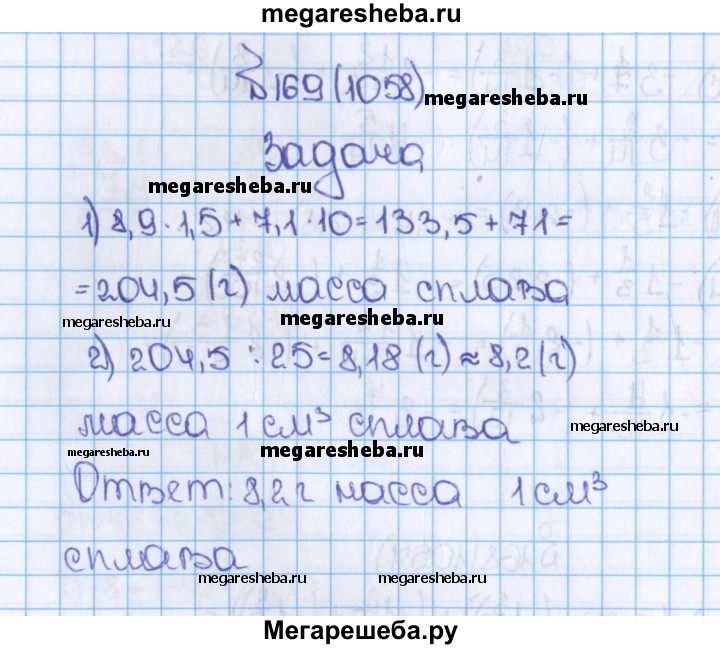 megaresheba.ru
№169(1058) megaresheba.ru
задача
megaresheba.ru
1) 8,9·1,5+7,1·10=133,5+71=
=204,5(г) масса сплава
megaresheba.ru megaresheba.ru
2) 204,5:25=8,18(г)≈8,2(г)
масса 1см³ сплава megaresheba.ru
megaresheba.ru megaresheba.ru
Ответ: 8,2г масса 1см³
сплава
megaresheba.ru megaresheba.ru
Мегарешеба.ру